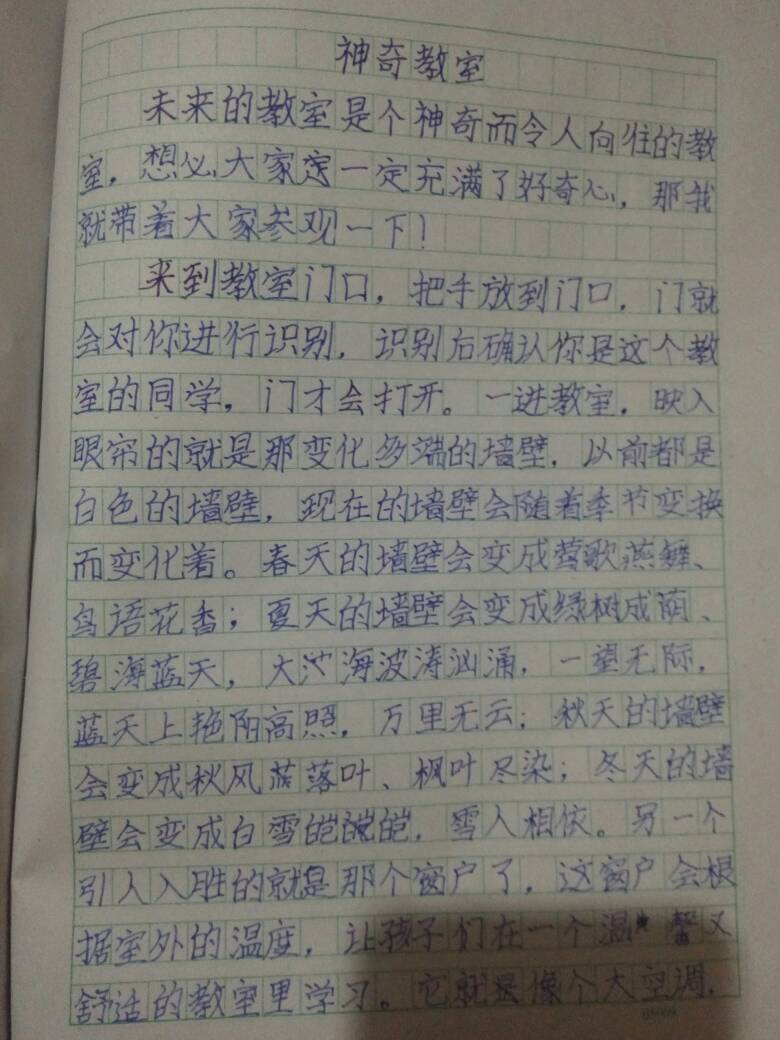 神奇教室
未来的教室是个神奇而令人向往的教
室，想必大家定一定充满了好奇心，那我
就带着大家参观一下！
来到教室门口，把手放到门口，门就
会对你进行识别，识别后确认你是这个教
室的同学，门才会打开。一进教室，映入
眼帘的就是那变化多端的墙壁，以前都是
白色的墙壁，现在的墙壁会随着季节变换
而变化着。春天的墙壁会变成莺歌燕舞、
鸟语花香；夏天的墙壁会变成绿树成荫、
碧海蓝天，大海波涛汹涌，一望无际，
蓝天上艳阳高照，万里无云；秋天的墙壁
会变成秋风落叶、枫叶尽染；冬天的墙
壁会变成白雪皑皑，雪人相依。另一个
引人入胜的就是那个窗户了，这窗户会根
据室外的温度，让孩子们在一个温馨又
舒适的教室里学习。它就是像个大空调，